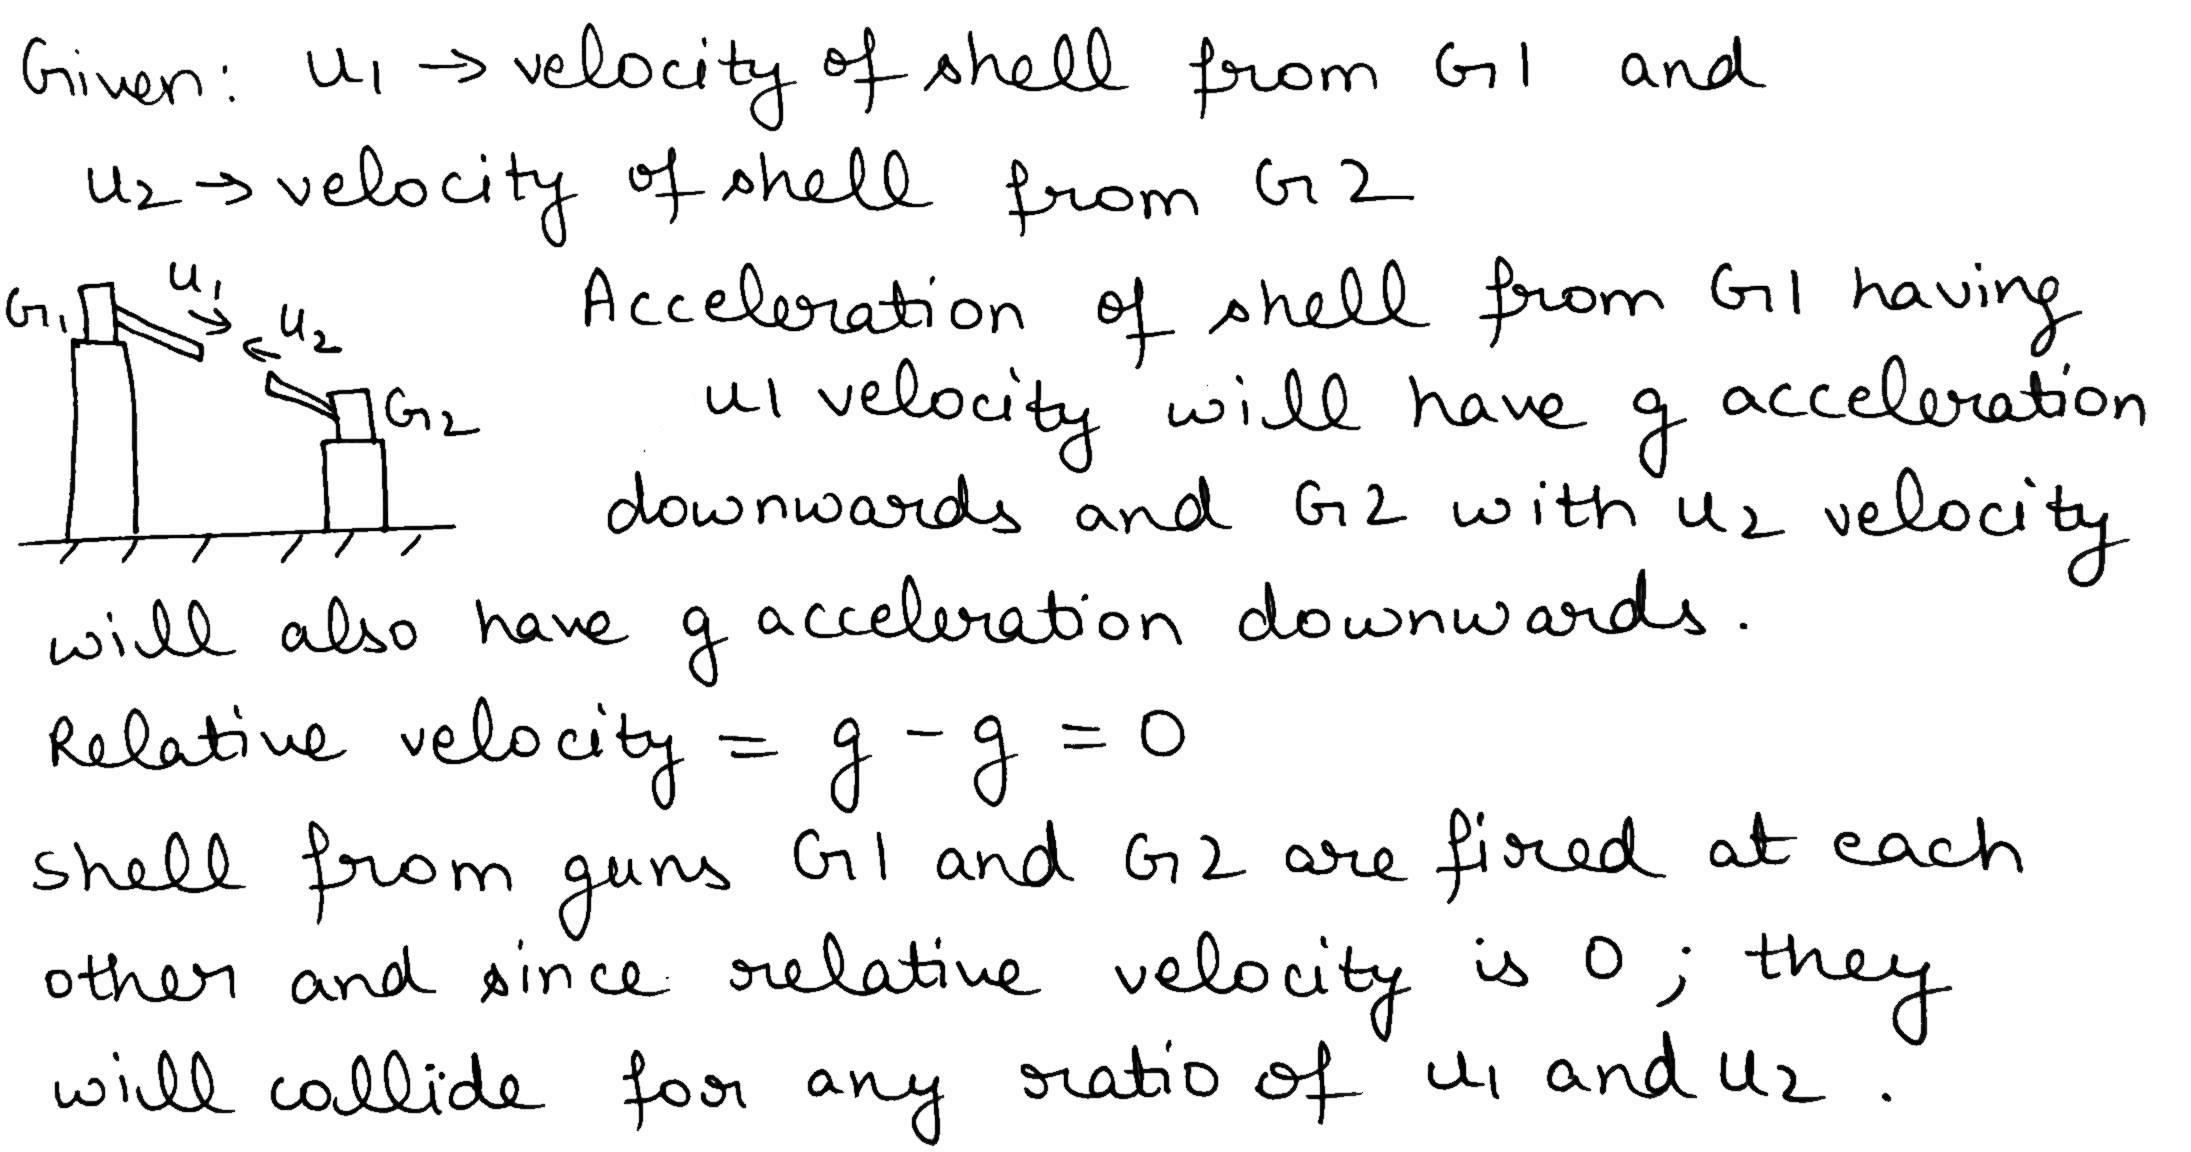 Given: u1 → velocity of shell from G1 and
u2 → velocity of shell from G2
G1 u1 u2 G2
Acceleration of shell from G1 having
u1 velocity will have g acceleration
downwards and G2 with u2 velocity
will also have g acceleration downwards.
Relative velocity = g - g = 0
shell from guns G1 and G2 are fired at each
other and since relative velocity is 0; they
will collide for any ratio of u1 and u2.